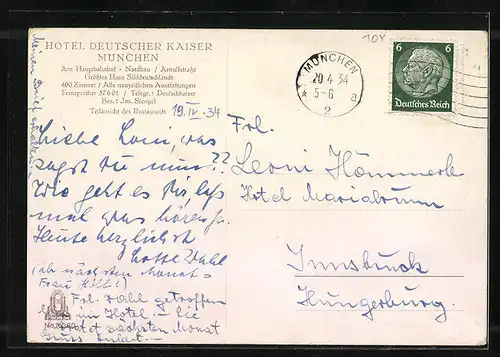 HOTEL DEUTSCHER KAISER
MÜNCHEN
Am Hauptbahnhof - Nordbau / Arnulfstraße
Größtes Haus Süddeutschlands
400 Zimmer / Alle neuzeitlichen Ausstattungen
Fernsprecher 57601 / Telegr.: Deutschkaiser
Bes.: Jos. Stengel
Teilansicht des Restaurants
19.IV.34
Liebe Loni, was
sagst Du nun??
Wie geht es Dir, lass
mal was hören
Heute herzlichst
Lotte Dahl
(ab nächsten Monat =
Frau Hill!)
Frl. Dahl getroffen
im Hotel. - Sie
nächsten Monat
Gruss
10x
MÜNCHEN
20 4 34
5-6
a
2
6 6
Deutsches Reich
Frl.
Leoni Hämmerle
Hotel Mariabrunn
Innsbruck
Hungerburg.